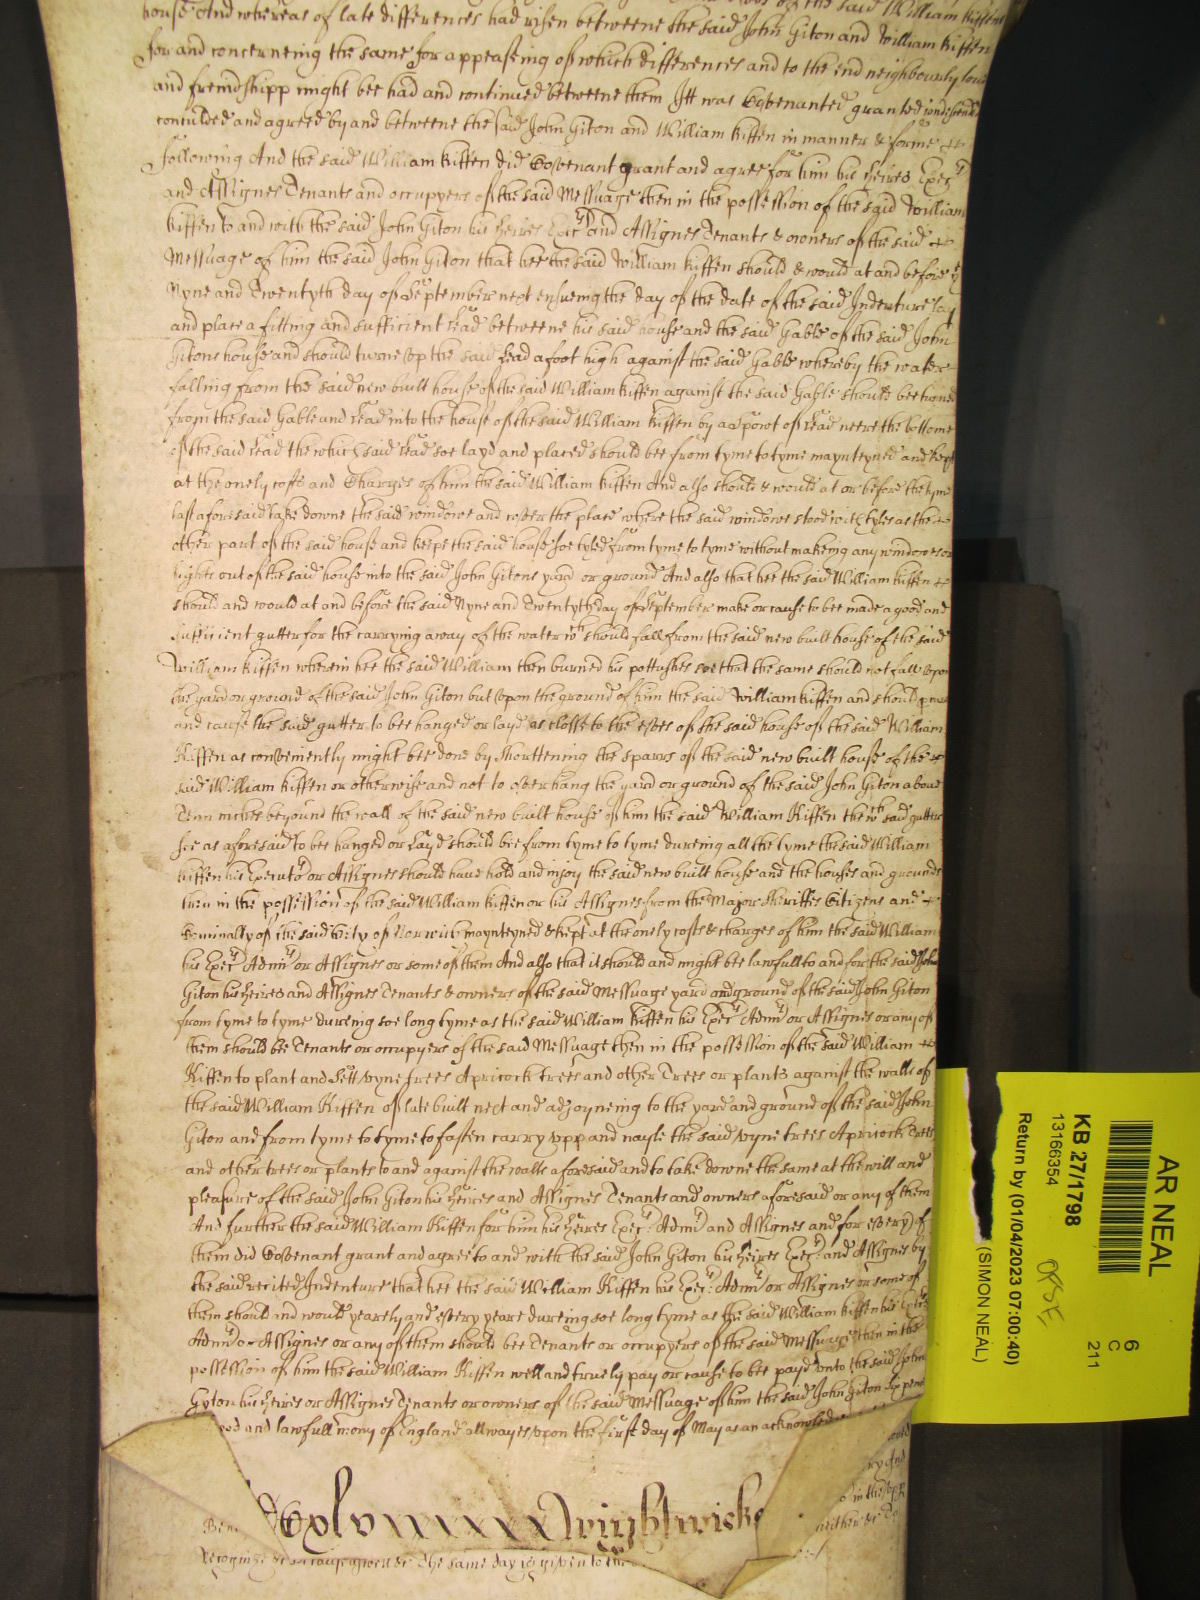 of the said William Kiffens
house And whereas of late differences had risen betweene the said John Giton and William Kiffen
for and concerneing the same for appeaseing of which differences and to the end neighbourly love
and freindshipp might bee had and continued betweene them Itt was Covenanted granted
concluded and agreed by and betweene the said John Giton and William Kiffen in manner & forme
following And the said William Kiffen did Covenant grant and agree for him his heires Execrs
and Assignes Tenants and occupyers of the said Messuage then in the possession of the said William
Kiffen to and with the said John Giton his heires Execrs and Assignes Tenants & owners of the said
Messuage of him the said John Giton that hee the said William Kiffen should & would at and before ye
Nyne and Twentyth day of September next ensueing the day of the date of the said Indenture lay
and place a fitting and sufficient Lead betweene his said house and the said Gable of the said John
Gitons house and should turne upp the said Lead a foot high against the said Gable whereby the water
falling from the said new built house of the said William Kiffen against the said Gable should bee
from the said Gable and Lead into the house of the said William Kiffen by a spowt of Lead neere the bottome
of the said Lead the which said Lead soe layd and placed should bee from tyme to tyme maynteyned and kept
at the onely costs and Charges of him the said William Kiffen And also should & would at or before the tyme
last aforesaid take downe the said windowe and cover the place where the said windowe stood with tyles as the
other part of the said house and keepe the said house soe tyled from tyme to tyme without makeing any windowes or
lights out of the said house into the said John Gitons yard or ground And also that hee the said William Kiffen
should and would at and before the said Nyne and Twentyth day of September make or cause to bee made a good and
sufficient gutter for the carrying away of the water wch should fall from the said new built house of the said
William Kiffen wherein hee the said William then burned his pottashes soe that the same should not fall upon
the yard or ground of the said John Giton but upon the ground of him the said William Kiffen and should
and cause the said gutter to bee hanged or layd as close to the eves of the said house of the said William
Kiffen as conveniently might bee done by shorttening the sparrs of the said new built house of the
said William Kiffen or otherwise and not to overhang the yard or ground of the said John Giton above
Tenn inches beyound the wall of the said new built house of him the said William Kiffen the wch said gutter
soe as aforesaid to bee hanged or Layd should bee from tyme to tyme dureing all the tyme the said William
Kiffen his Executors or Assignes should have hold and injoy the said new built house and the houses and grounds
then in the possession of the said William Kiffen or his Assignes from the Major Sheriffes Citizens and
Cominalty of the said City of Norwich maynteyned & kept at the onely costs & charges of him the said William
his Execrs Admrs or Assignes or some of them And also that it should and might bee lawfull to and for the said John
Giton his heires and Assignes Tenants & owners of the said Messuage yard and ground of the said John Giton
from tyme to tyme dureing soe long tyme as the said William Kiffen his Execrs Admrs or Assignes or any of
them should bee Tenants or occupyers of the said Messuage then in the possession of the said William
Kiffen to plant and sett vyne trees Apricock trees and other Trees or plants against the walls of
the said William Kiffen of late built next and adjoyneing to the yard and ground of the said John
Giton and from tyme to tyme to fasten carry upp and nayle the said vyne trees Apricock Trees
and other trees or plants to and against the walls aforesaid and to take downe the same at the will and
pleasure of the said John Giton his heires and Assignes Tenants and owners aforesaid or any of them
And further the said William Kiffen for him his heires Execrs Admrs and Assignes and for every of
them did Covenant grant and agree to and with the said John Giton his heires Execrs and Assignes by
the said recited Indenture that hee the said William Kiffen his Execrs Admrs or Assignes or some of
them should and would yearely and every yeare dureing soe long tyme as the said William Kiffen his Execrs
Admrs or Assignes or any of them should bee Tenants or occupyers of the said Messuage then in the
possession of him the said William Kiffen well and truely pay or cause to bee payd unto the said John
Gyton his heires or Assignes Tenants or owners of the said Messuage of him the said John Giton
and lawfull mony of England allwayes upon the first day of May as an
The same day is given to the
AR NEAL
6
C
211
KB 27/1798
13166354
Return by (01/04/2023 07:00:40)
(SIMON NEAL)